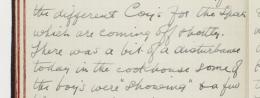 the different Coy's for the Sports
which are coming off shortly.
There was a bit of a disturbance
today in the cookhouse some of
the boys were "showing" a few